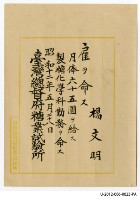 楊文明
雇ヲ命ス
月俸六十五圓ヲ給ス
製糖化學科勤務ヲ命ス
昭和十二年五月十八日
臺灣總督府糖業試驗所
U-2012-056-0023-PA